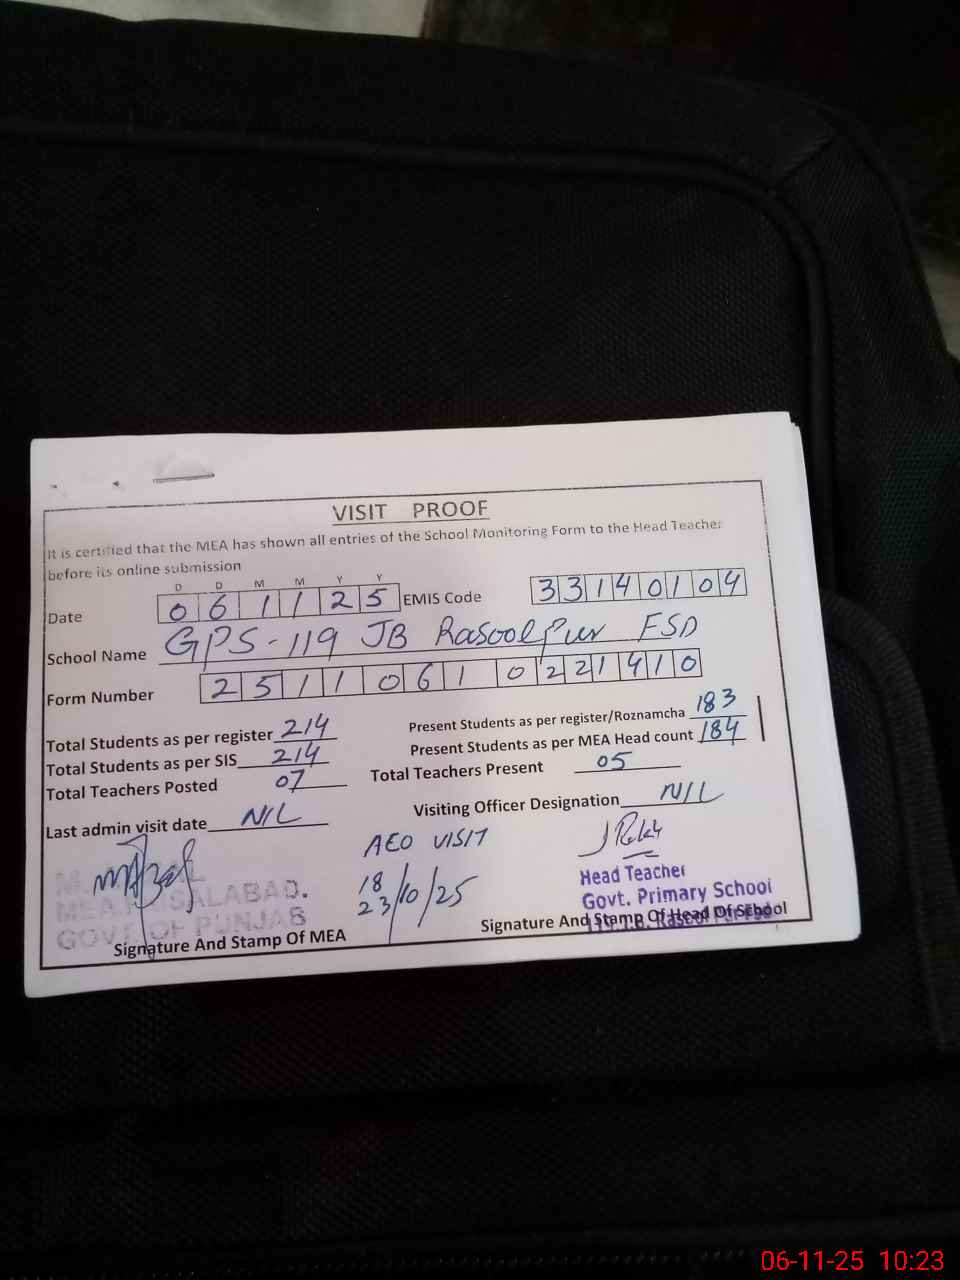 VISIT PROOF
It is certified that the MEA has shown all entries of the School Monitoring Form to the Head Teacher
before its online submission
D D M M Y Y
Date 0 6 1 1 2 5 EMIS Code 3 3 1 4 0 1 0 4
School Name GPS-119 JB Rasoolpur FSD
Form Number 2 5 1 1 0 6 1 0 2 2 1 4 1 0
Total Students as per register 214 Present Students as per register/Roznamcha 183
Total Students as per SIS 214 Present Students as per MEA Head count 184
Total Teachers Posted 07 Total Teachers Present 05
Last admin visit date NIL Visiting Officer Designation NIL
AEO VISIT
18
23/10/25
MEA FAISALABAD.
GOVT. OF PUNJAB
Signature And Stamp Of MEA
Head Teacher
Govt. Primary School
119 J.B. Rasool Pur Fsd
Signature And Stamp Of Head Of School
06-11-25 10:23